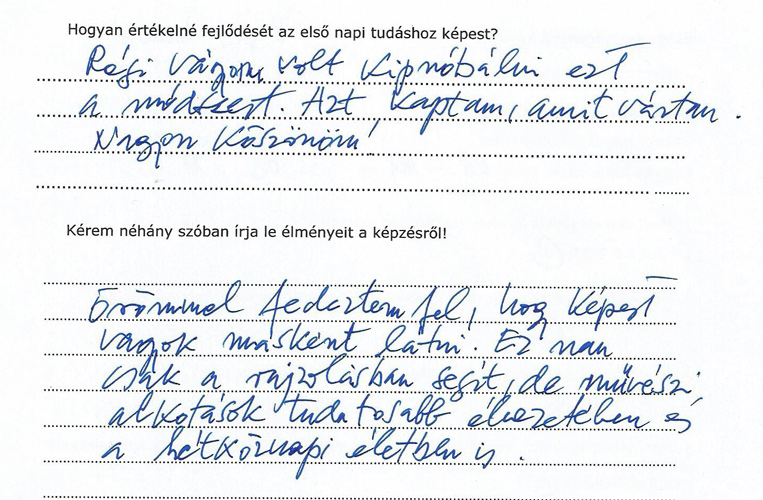 Hogyan értékelné fejlődését az első napi tudáshoz képest?
Régi vágyam volt kipróbálni ezt
a módszert. Azt kaptam, amit vártam.
Nagyon köszönöm!
Kérem néhány szóban írja le élményeit a képzésről!
Örömmel fedeztem fel, hogy képest
vagyok másként látni. Ez nem
csak a rajzolásban segít, de művészi
alkotások tudatosabb élvezetében és
a hétköznapi életben is.